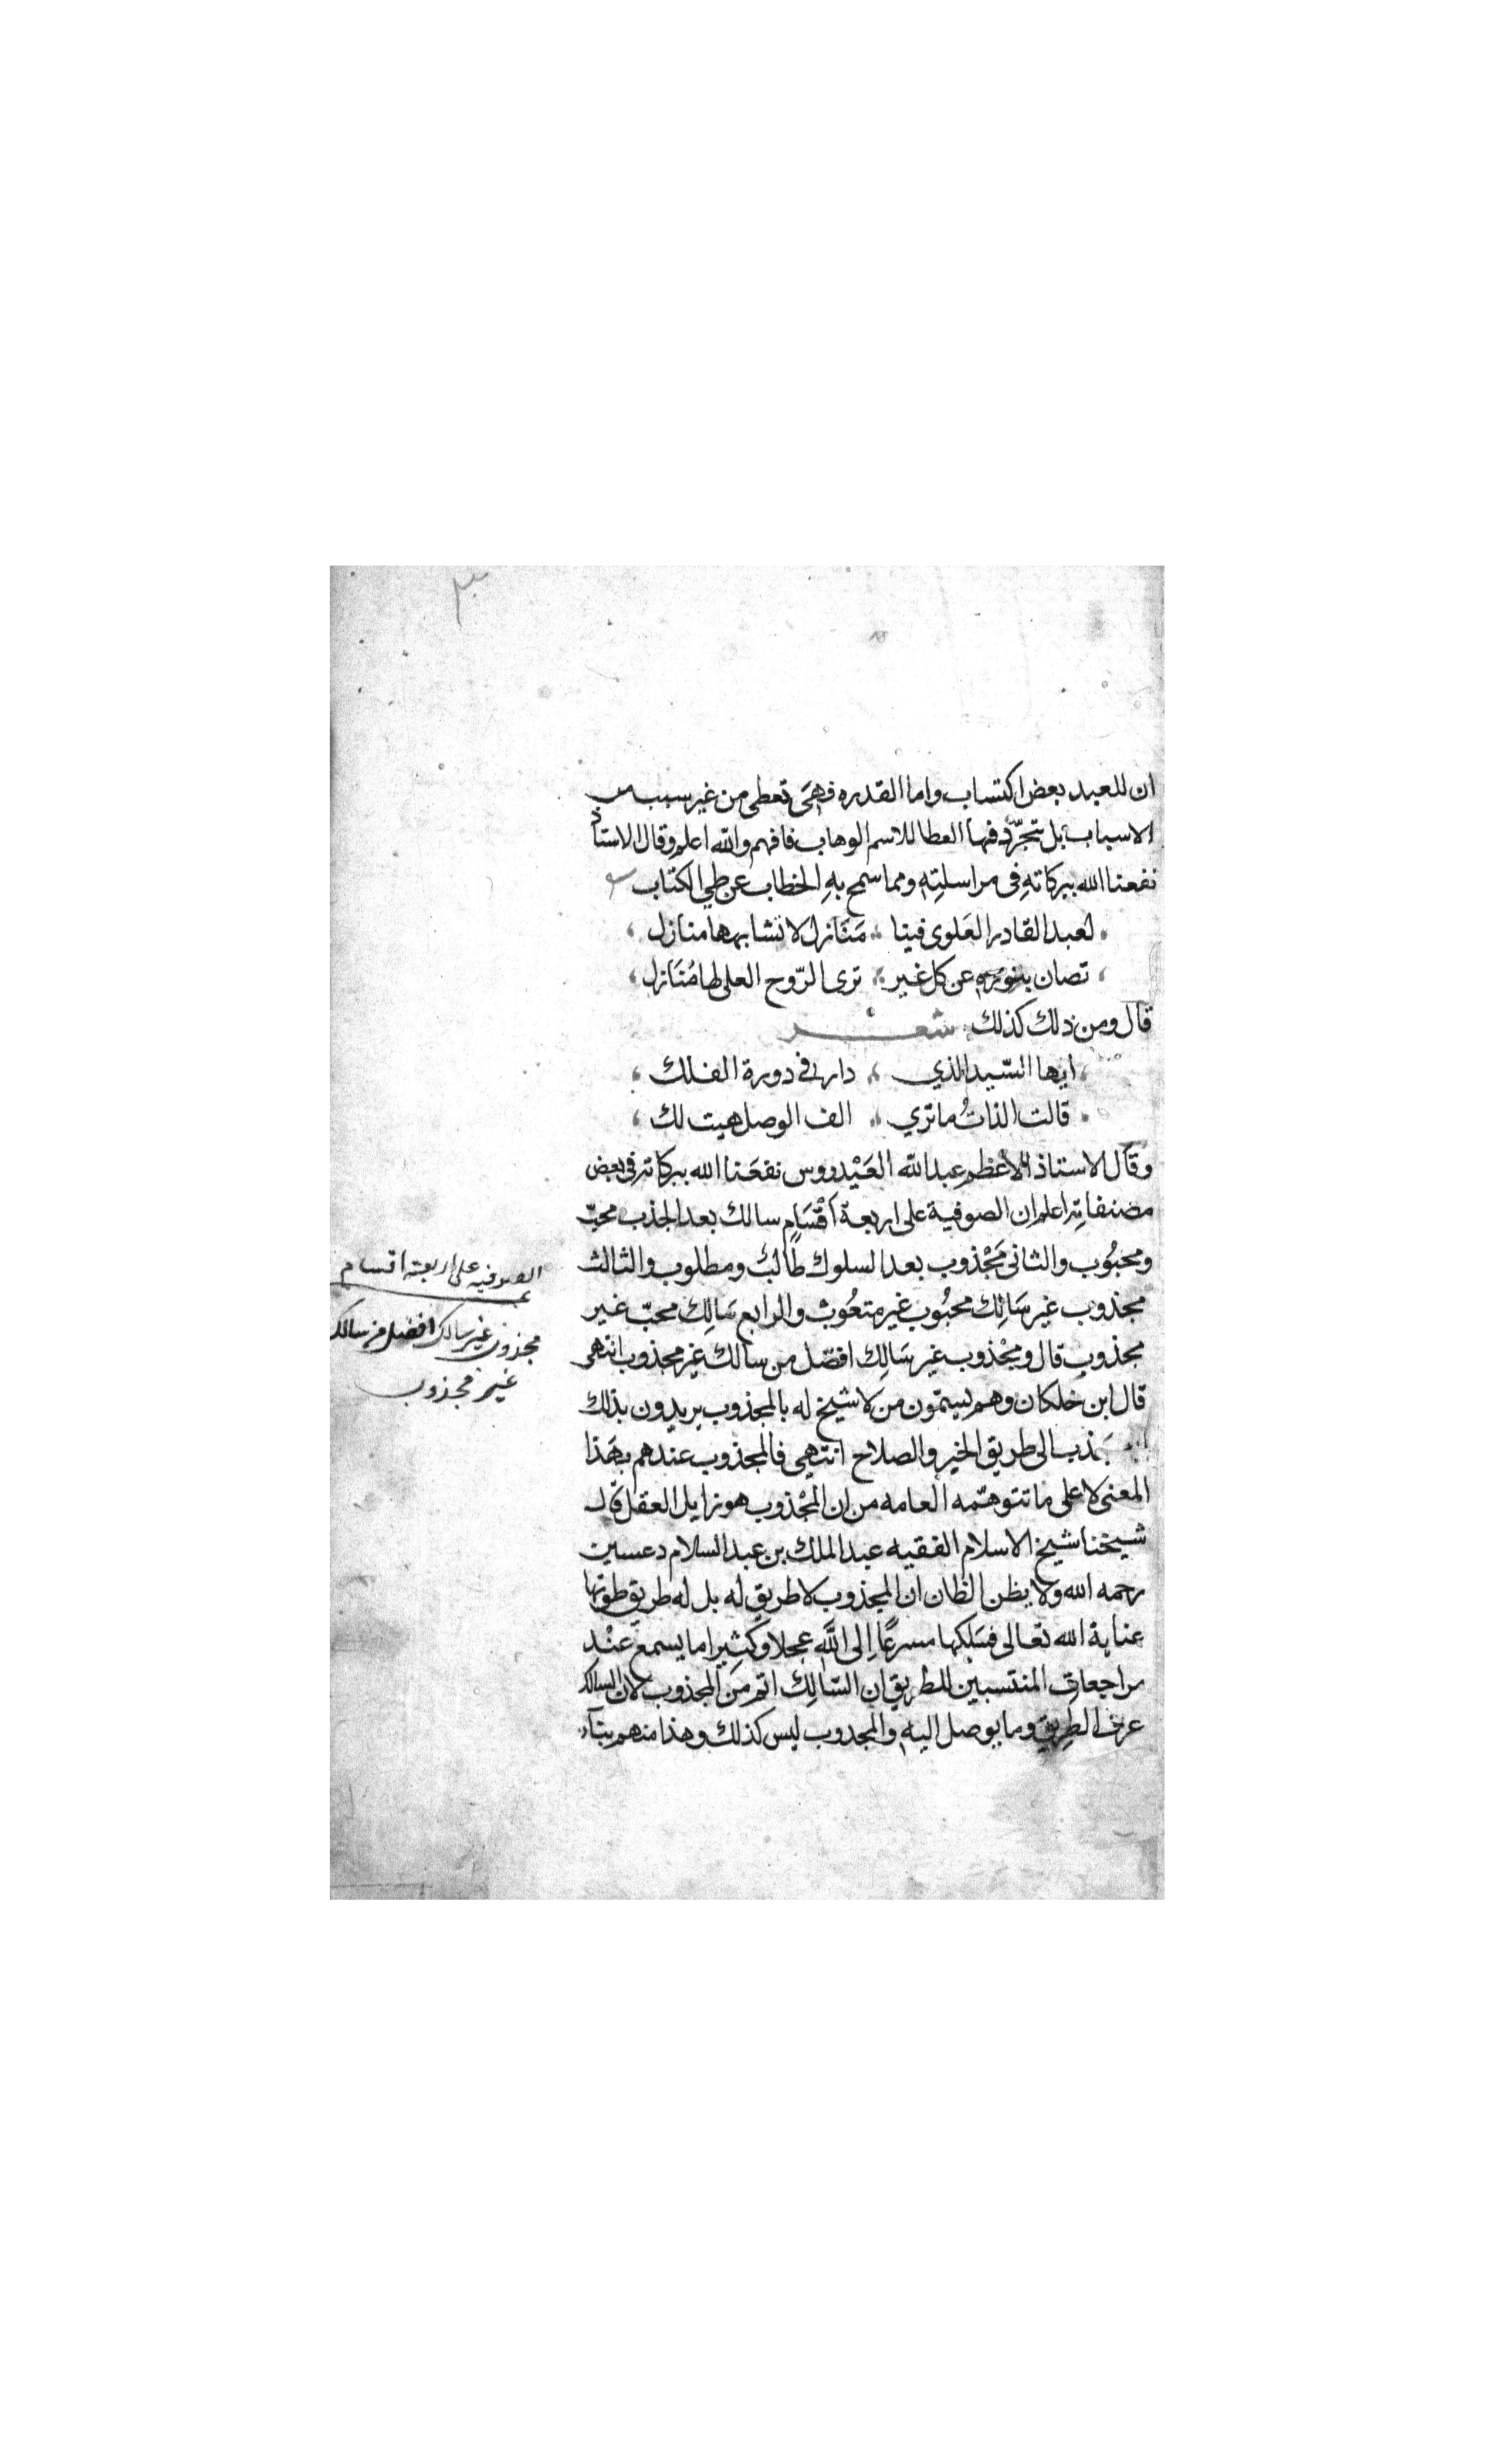 ٣
ان للعبد بعض اكتساب واما القدره فهي تعطى من غير سبب من
الاسباب بل تتجرد فيها العطا للاسم الوهاب فافهم والله اعلم وقال الاستاذ
نفعنا الله ببركاته في مراسلته ومما سمح به الخطاب عن طي الكتاب
لعبد القادر العلوي فينا منازل لا تشابهها منازل
تصان بنوره عن كل غير ترى الروح العلى لها منازل
قال ومن ذلك كذلك شعر
ايها السيد الذي دار في دورة الفلك
قالت الذات ما تري الف الوصل هيت لك
وقال الاستاذ الاعظم عبد الله العيدروس نفعنا الله ببركاته في بعض
مصنفاته اعلم ان الصوفية على اربعة اقسام سالك بعد الجذب محب
ومحبوب والثاني مجذوب بعد السلوك طالب ومطلوب والثالث
مجذوب غير سالك محبوب غير متعوب والرابع سالك محب غير
مجذوب قال ومجذوب غير سالك افضل من سالك غير مجذوب انتهى
قال ابن خلكان وهم يسمون من لا شيخ له بالمجذوب يريدون بذلك
جذب الى طريق الخير والصلاح انتهى فالمجذوب عندهم بهذا
المعنى لا على ما تتوهمه العامه من ان المجذوب هو زايل العقل قال
شيخنا شيخ الاسلام الفقيه عبد الملك بن عبد السلام دعسين
رحمه الله ولا يظن الظان ان المجذوب لا طريق له بل له طريق طوتها
عناية الله تعالى فسلكها مسرعا الى الله عجلا وكثيرا ما يسمع عند
مراجعات المنتسبين للطريق ان السالك اتم من المجذوب لان السالك
عرف الطريق وما يوصل اليه والمجذوب ليس كذلك وهذا منهم بناء
الصوفيه على اربعة اقسام
مجذوب غير سالك افضل من سالك
غير مجذوب